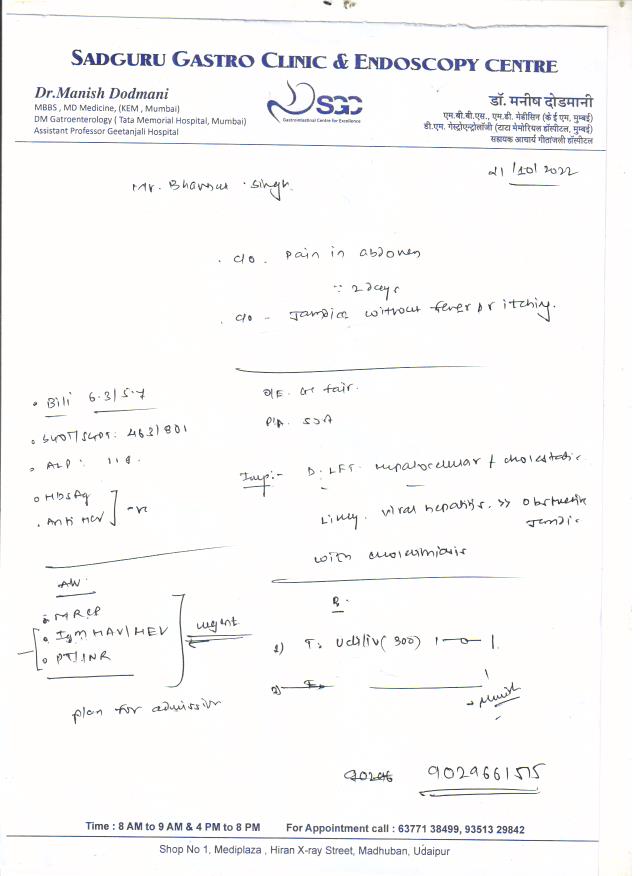 SADGURU GASTRO CLINIC & ENDOSCOPY CENTRE
Dr.Manish Dodmani
MBBS , MD Medicine, (KEM , Mumbai)
DM Gatroenterology ( Tata Memorial Hospital, Mumbai)
Assistant Professor Geetanjali Hospital
SGC
Gastrointestinal Centre for Excellence
डॉ. मनीष दोडमानी
एम.बी.बी.एस., एम.डी. मेडीसिन (के ई एम, मुम्बई)
डी.एम. गेस्ट्रोएन्ट्रोलॉजी (टाटा मेमोरियल हॉस्पीटल, मुम्बई)
सहायक आचार्य गीतांजली हॉस्पीटल
21/10/2022
Mr. Bhanwar Singh
. c/o . pain in abdomen
2 days
. c/o - Jaundice without fever or itching.
. Bili 6.3/5.7
O/E. GC fair.
. SGOT/SGPT: 463/801
P/A. Soft
. ALP : 118.
Imp:- D. LFT. hepatocellular + cholestatic
. HBsAg
. Anti HCV ] -ve
Likely. viral hepatitis. >> obstructive
Jaundice
with
Adv.
. MRCP
. IgM HAV/HEV
. PT/INR
urgent
R.
1) T. Udiliv (300) 1-0-1
2) T.
plan for admission
90296
9029661515
Time : 8 AM to 9 AM & 4 PM to 8 PM For Appointment call : 63771 38499, 93513 29842
Shop No 1, Mediplaza , Hiran X-ray Street, Madhuban, Udaipur